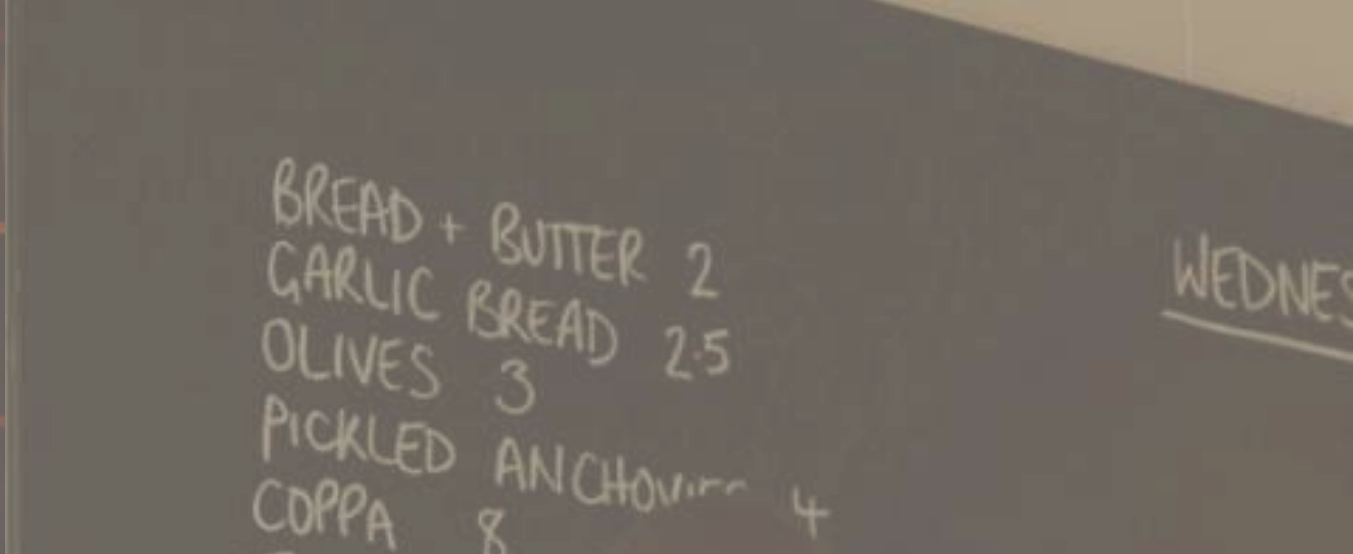 BREAD + BUTTER 2
GARLIC BREAD 2.5
OLIVES 3
PICKLED 4
COPPA 8
WEDNES